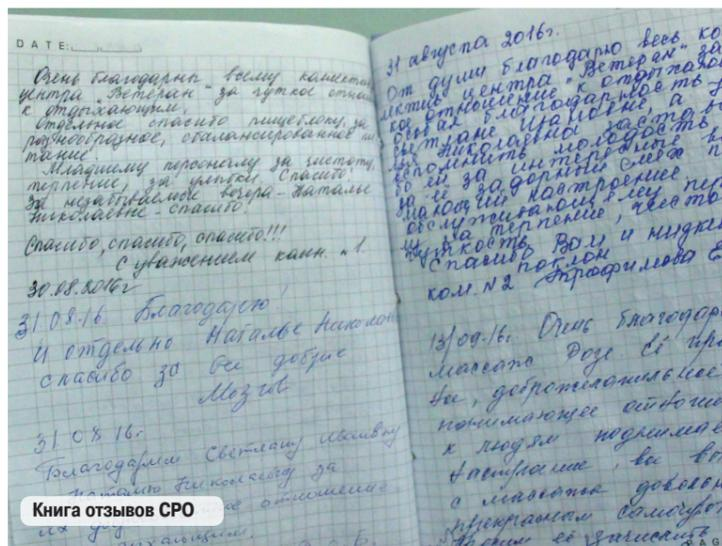 DATE:
Очень благодарны всему коллектив
центра "Ветеран" за чуткое отнош
к отдыхающим.
Отдельное спасибо пищеблоку за
разнообразное, сбалансированное пи
тание.
Младшему персоналу за чистоту,
терпение, за улыбки. Спасибо!
За незабываемые вечера - Наталье
Николаевне - спасибо!
Спасибо, спасибо, спасибо!!!
С уважением комн. №1.
30.08.2016г
31.08.16. Благодарю!
И отдельно Наталье Никола
спасибо за все доброе
Мозгов
31.08.16г.
Благодарим Светлану Ивановну
Наталью Николаевну за
отношение
31 августа 2016г.
От души благодарю весь ко
лектив центра "Ветеран" за
кое отношение к отдыхаю
Особая благодарность
Светлане Ивановне, а
Николаевна заставл
вспомнить молодость
за интересные
за её задорный смех п
мающий настроение
обслуживающему пер
за терпение, чисто
чуткость.
Спасибо Вам и низки
поклон
ком. №2 Трофимова Е
13/09-16г. Очень благодар
массаж Розе. Её
доброжелательное
понимающее отноше
к людям поднимае
настроение, все
с массажа доволь
прекрасным самочув
Книга отзывов СРО
PAG